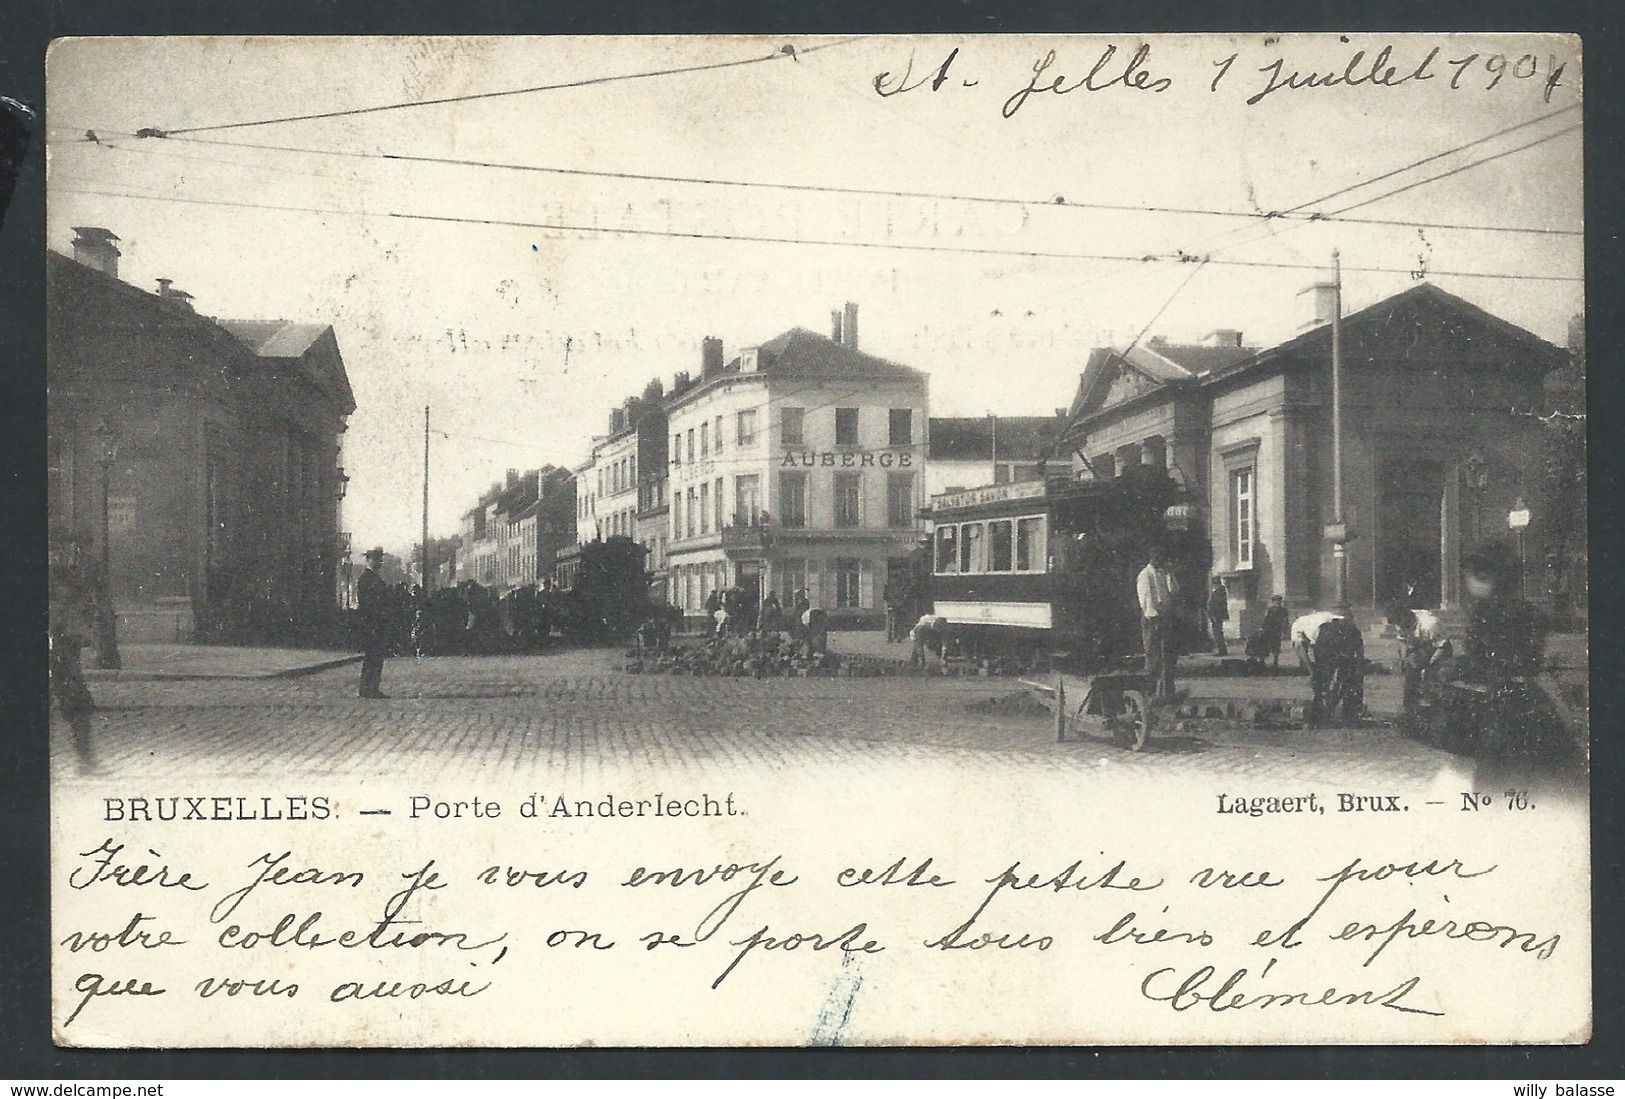 St. Gelles 1 Juillet 1901
AUBERGE
SALVATOR SAVON
BRUXELLES. — Porte d'Anderlecht.
Lagaert, Brux. — No 76.
Frère Jean je vous envoye cette petite vue pour
votre collection, on se porte tous bien et espérons
que vous aussi
Clément
willy balasse